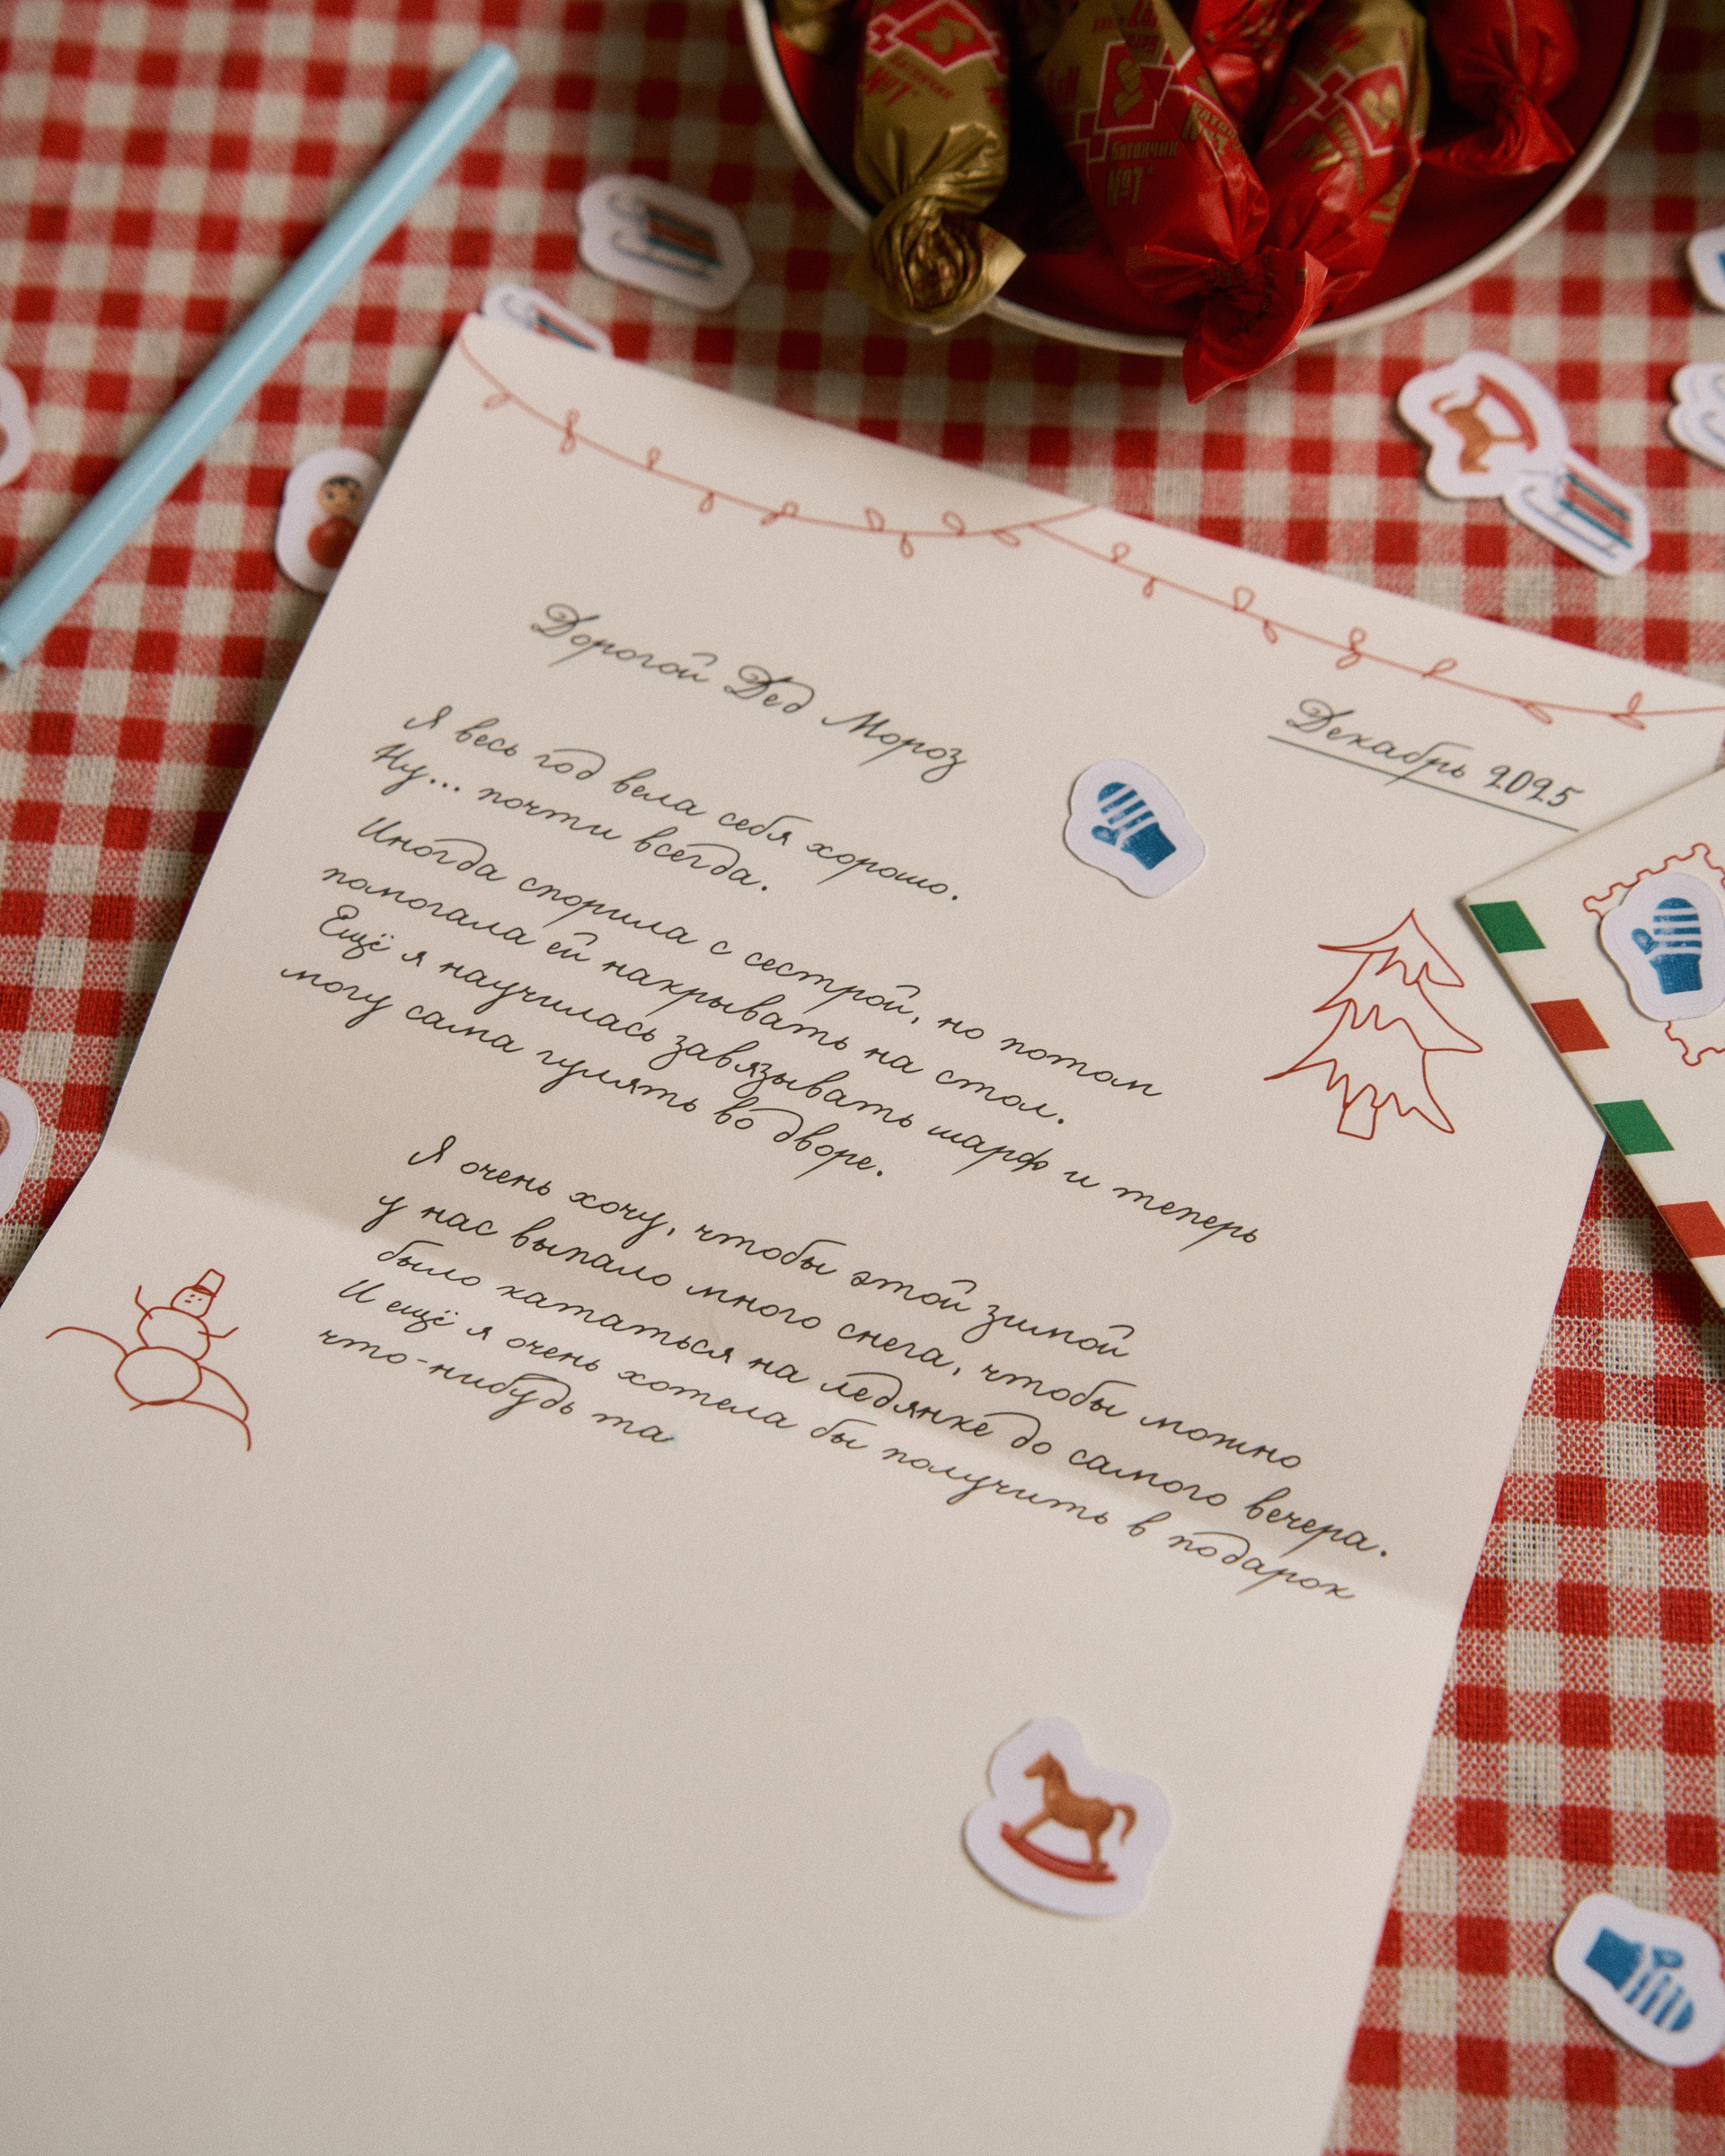 БАТОНЧИК
№1
Дорогой Дед Мороз
Декабрь 2025
Я весь год вела себя хорошо.
Ну... почти всегда.
Иногда спорила с сестрой, но потом
помогала ей накрывать на стол.
Ещё я научилась завязывать шарф и теперь
могу сама гулять во дворе.
Я очень хочу, чтобы этой зимой
у нас выпало много снега, чтобы можно
было кататься на ледянке до самого вечера.
И ещё я очень хотела бы получить в подарок
что-нибудь та